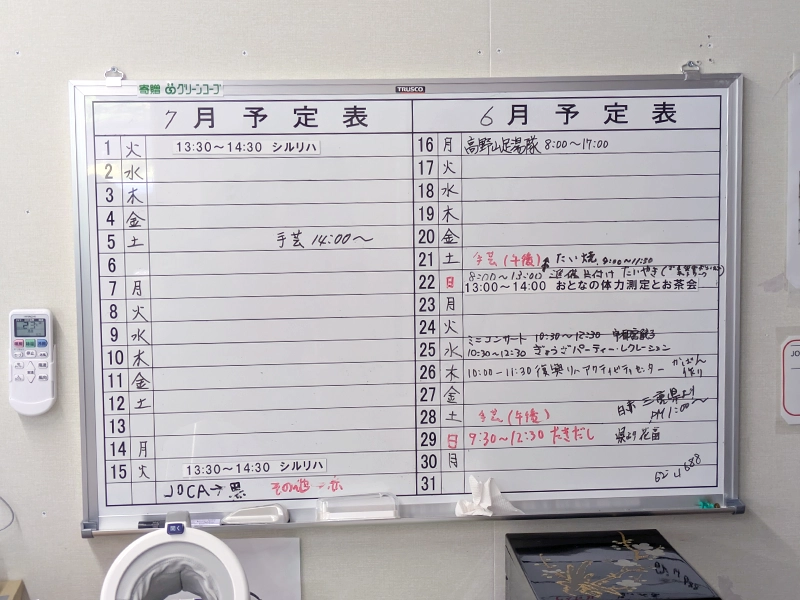 寄贈 グリーンコープ
TRUSCO
7月予定表
1 火 13:30～14:30 シルリハ
2 水
3 木
4 金
5 土 手芸 14:00～
6
7 月
8 火
9 水
10 木
11 金
12 土
13
14 月
15 火 13:30～14:30 シルリハ
JOCA→黒 その他→赤
6月予定表
16 月 高野山足湯隊 8:00～17:00
17 火
18 水
19 木
20 金
21 土 手芸(午後) たい焼 9:00～11:30
8:00～13:00 準備片付け たいやき
22 日 13:00～14:00 おとなの体力測定とお茶会
23 月
24 火
ミニコンサート 10:30～12:30
25 水 10:30～12:30 ぎょうざパーティー・レクレーション
26 木 10:00-11:30 復興リハアクティビティセンター かばん作り
27 金
28 土 手芸(午後) 日赤 三重県より PM1:00～
29 日 9:30～12:30 たきだし 県より花苗
30 月
31
開く